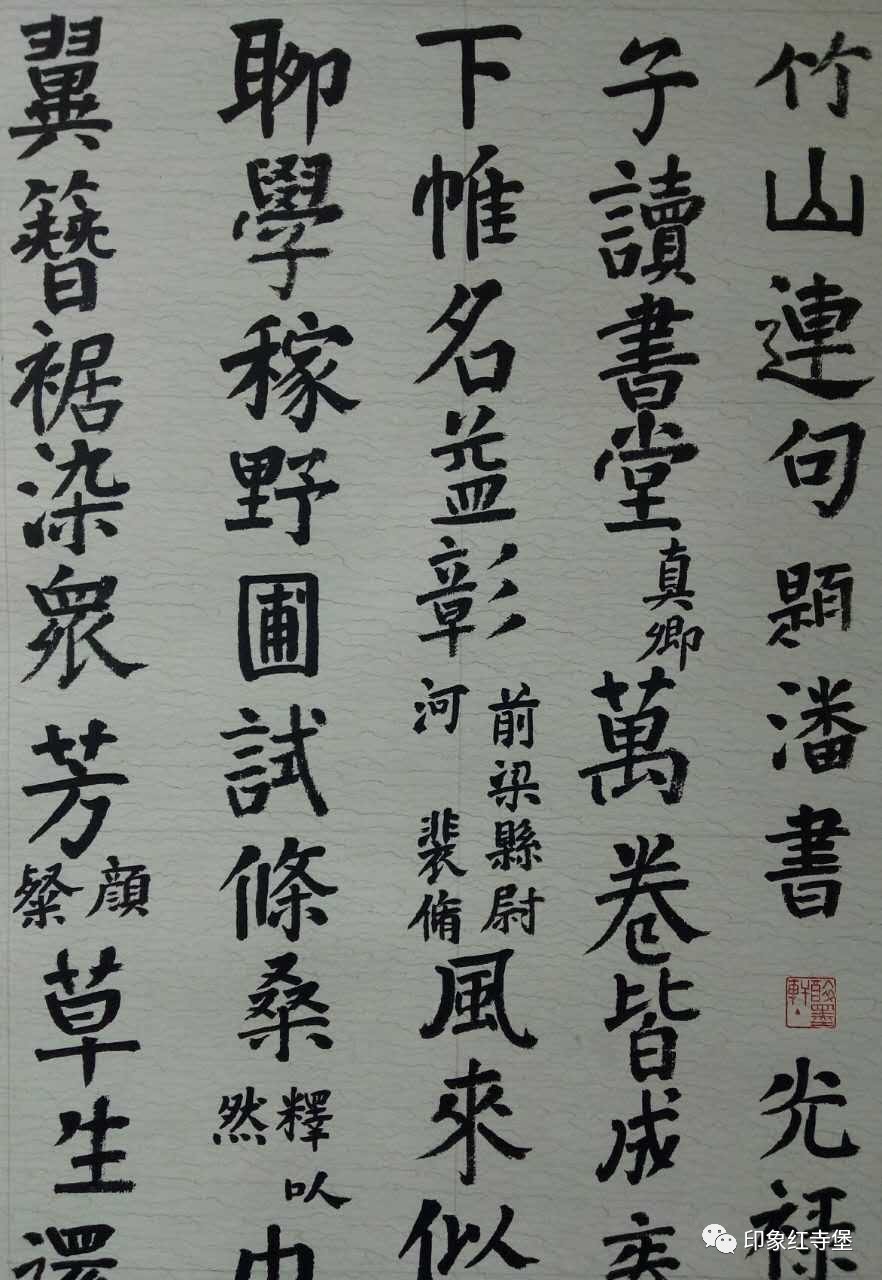 竹山連句題潘書光祿
子讀書堂真卿萬卷皆成
下帷名益彰前梁縣尉河裴脩風來似
聊學稼野圃試條桑釋以然巾
翼簪裾染衆芳顔粲草生還
印象红寺堡